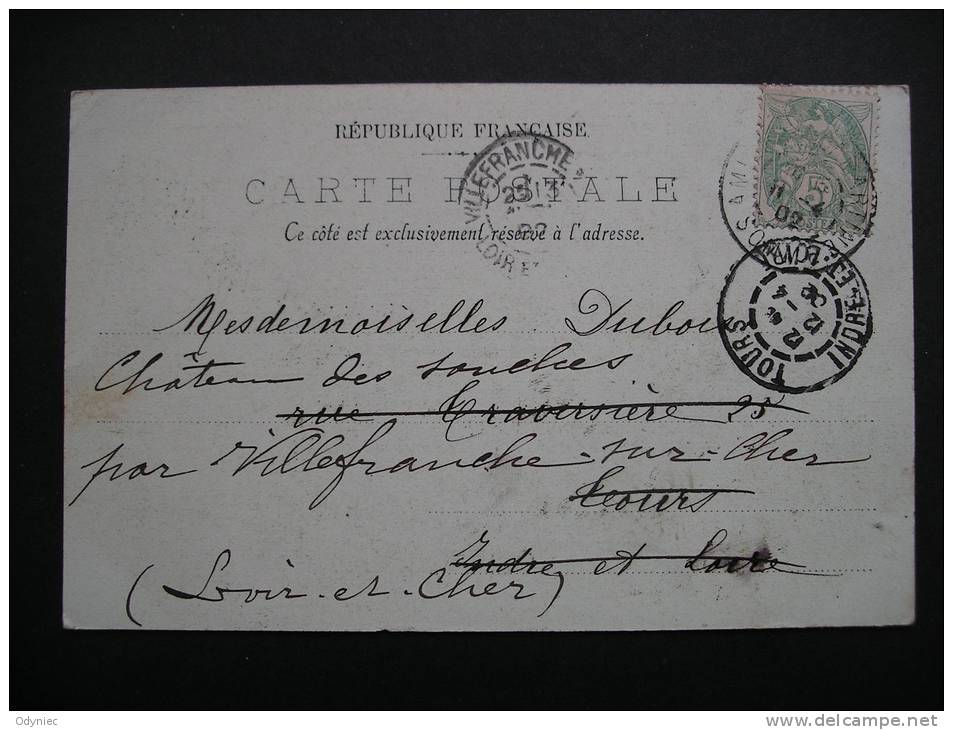 RÉPUBLIQUE FRANÇAISE
CARTE POSTALE
Ce côté est exclusivement réservé à l'adresse.
VILLEFRANCHE
LOIR ET
5
TOURS
INDRE-ET-LOIRE
Mesdemoiselles Dubois
Château des souches
rue Traversière 25
par Villefranche-sur-Cher
Tours
Indre et Loire
(Loir-et-Cher)
Odyniec
www.delcampe.net